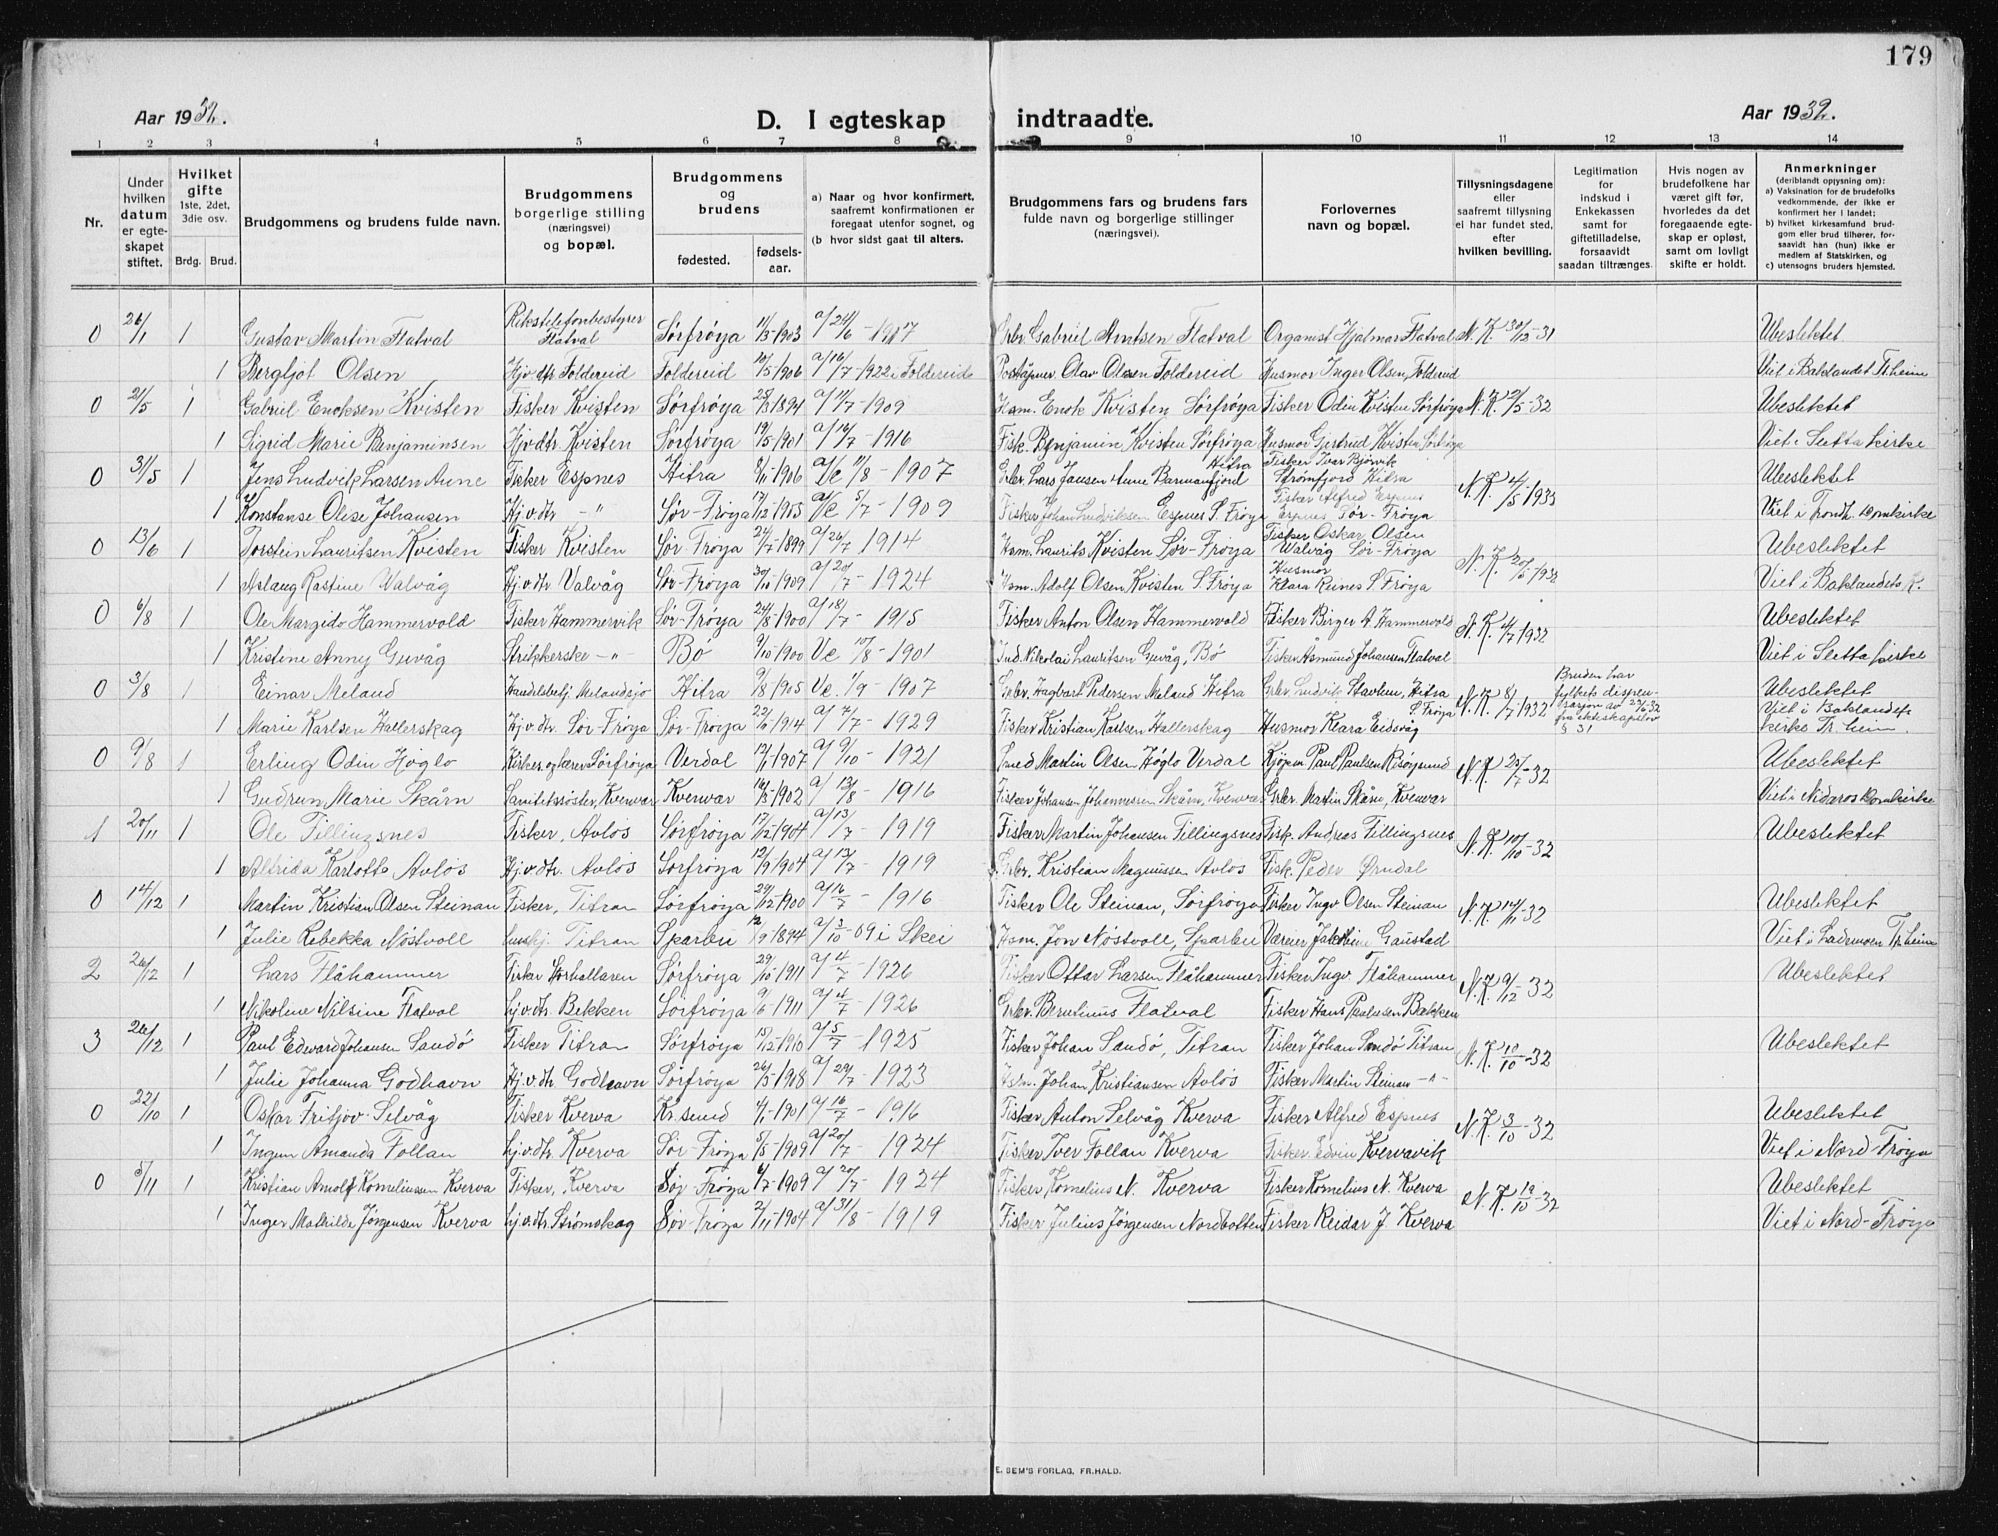 179
Aar 1932.
D. I egteskap indtraadte.
Aar 1932.
1 2 3 4 5 6 7 8 9 10 11 12 13 14
Nr.
Under hvilken datum er egteskapet stiftet.
Hvilket gifte 1ste, 2det, 3die osv.
Brdg. Brud.
Brudgommens og brudens fulde navn.
Brudgommens borgerlige stilling (næringsvei) og bopæl.
Brudgommens og brudens
fødested.
fødselsaar.
a) Naar og hvor konfirmert, saafremt konfirmationen er foregaat utenfor sognet, og
(b hvor sidst gaat til alters.
Brudgommens fars og brudens fars fulde navn og borgerlige stillinger (næringsvei).
Forlovernes navn og bopæl.
Tillysningsdagene eller saafremt tillysning ei har fundet sted, efter hvilken bevilling.
Legitimation for indskud i Enkekassen samt for giftetilladelse, forsaavidt saadan tiltrænges.
Hvis nogen av brudefolkene har været gift før, hvorledes da det foregaaende egteskap er opløst, samt om lovligt skifte er holdt.
Anmerkninger (deriblandt opjysning om):
a) Vaksination for de brudefolks vedkommende, der ikke er konfirmert her i landet;
b) hvilket kirkesamfund brudgom eller brud tilhører, forsaavidt han (hun) ikke er medlem af Statskirken, og
c) utensogns bruders hjemsted.
0 26/1 1 Gustav Martin Flatval Rikstelefonbestyrer Flatval Sørfrøya 11/3 1903 a/ 24/6 - 1917 Grbr. Gabriel Arntsen Flatval Organist Hjalmar Flatval N.K. 30/12-31 Ubeslektet
1 Bergljot Olsen Hjv. dtr Foldereid Foldereid 10/5 1906 a/ 16/7 - 1922 i Foldereid Poståpner Olav Olsen Foldereid Husmor Inger Olsen, Foldereid Viet i Baklandet Tr.heim
0 21/5 1 Gabriel Enoksen Kvisten Fisker Kvisten Sørfrøya 25/3 1894 a/ 11/7 - 1909 Hsm. Enok Kvisten Sørfrøya Fisker Odin Kvisten Sørfrøya N.K. 12/5-32 Ubeslektet
1 Sigrid Marie Benjaminsen Hjv. dtr. Kvisten Sørfrøya 19/5 1901 a/ 16/7 - 1916 Fisk. Benjamin Kvisten Sørfrøya Husmor Gjertrud Kvisten Sørfrøya Viet i Sletta kirke
0 31/5 1 Jens Ludvik Larsen Aune Fisker Espnes Hitra 8/11 1906 a/ Ve 11/8 - 1907 Grbr. Lars Jansen Aune Barmanfjord Hitra Fisker Ivar Bjørvik Strømfjord Hitra N.K. 4/5 1933 Ubeslektet
1 Konstanse Olise Johansen Hj.v. dtr —"— Sør-Frøya 17/12 1905 a/ Ve 5/7 - 1909 Fisker Johan Ludviksen Espnes S. Frøya Fisker Alfred Espnes Espnes Sør-Frøya Viet i Trondh. Domkirke
0 13/6 1 Torstein Lauritsen Kvisten Fisker Kvisten Sør Frøya 24/7 1899 a/ 26/7 1914 Hsm. Laurits Kvisten Sør-Frøya Fisker Oskar Olsen Walvåg Sør-Frøya N.K. 20/5 1932 Ubeslektet
1 Aslaug Kastine Walvåg Hj.v. dtr Valvåg Sør-Frøya 30/10 1909 a/ 20/7 - 1924 Hsm. Adolf Olsen Kvisten S Frøya Husmor Klara Reines S. Frøya Viet i Baklandets K.
0 6/8 1 Ole Margido Hammervold Fisker Hammervik Sør-Frøya 24/8 1900 a/ 18/7 - 1915 Fisker Anton Olsen Hammervold Fisker Birger A. Hammervold N.K. 4/7 1932 Ubeslektet
1 Kristine Anny Guvåg Strikkerske —"— Bø 9/10 1900 Ve 10/8 - 1901 Ind. Nikolai Lauritsen Guvåg, Bø Fisker Åsmund Johansen Flatval Viet i Sletta kirke
0 3/8 1 Einar Meland Handelsbetj. Melandsjø Hitra 9/8 1905 Ve. 1/9 - 1907 Grbr. Hagbart Pedersen Meland Hitra Grbr. Ludvik Stavlem, Hitra N.K. 8/7 1932 Bruden har fylkets dispensasjon av 27/6 32 fra ekteskapslov § 31 Ubeslektet
1 Marie Karlsen Hallerskag Hj.v. dtr Sør-Frøya Sør-Frøya 22/6 1914 a/ 7/7 - 1929 Fisker Kristian Karlsen Hallerskag Husmor Klara Eidsvåg S. Frøya Viet i Baklandets kirke Tr.heim.
0 9/8 1 Erling Odin Høglo Kirkes. og lærer Sørfrøya Verdal 12/1 1907 a/ 9/10 - 1921 Smed Martin Olsen Høglo Verdal Kjøpm Paul Paulsen Risøysund N.K. 23/7-32 Ubeslektet
1 Gudrun Marie Skårn Sanitetssøster, Kvenvær Kvenvær 14/3 1902 a/ 13/8 - 1916 Fisker Johansen Johannessen Skårn, Kvenvær Grbr. Martin Skårn, Kvenvær Viet i Nidaros Domkirke
1 20/11 1 Ole Tillingsnes Fisker, Avløs Sørfrøya 17/12 1904 a/ 13/7 - 1919 Fisker Martin Johansen Tillingsnes Fisk. Andreas Tillingsnes N.K. 10/10-32 Ubeslektet
1 Alfrida Karlotte Avløs Hj.v. dtr. Avløs Sørfrøya 12/9 1904 a/ 13/7 - 1919 Grbr. Kristian Magnussen Avløs Fisk. Peder Ørndal
0 14/12 1 Martin Kristian Olsen Steinan Fisker, Titran Sørfrøya 29/12 1900 a/ 16/7 - 1916 Fisker Ole Steinan, Sørfrøya Fisker Ingv Olsen Steinan N.K. 14/11-32 Ubeslektet
1 Julie Rebekka Nøstvoll hushj. Titran Sparbu 12/9 1894 a/ 3/10 - 09 i Skei Hsm. Jon Nøstvoll, Sparbu Væreier Jakobine Gaustad Viet i Lademoen Tr.heim
2 26/12 1 Lars Flåhammer Fisker Sørhallaren Sørfrøya 29/10 1911 a/ 4/7 - 1926 Fisker Ottar Larsen Flåhammer Fisker Ingv Flåhammer N.K. 9/12-32 Ubeslektet
1 Nikoline Nilsine Flatval hj.v. dtr. Bekken Sørfrøya 9/6 1911 a/ 4/7 - 1926 Grbr. Berntinus Flatval Fisker Hans Paulsen Bakken
3 26/12 1 Paul Edvard Johansen Sandø Fisker Titran Sørfrøya 15/12 1910 a/ 5/7 - 1925 Fisker Johan Sandø, Titran Fisker Johan Sandø Titran N.K. 10/10-32 Ubeslektet
1 Julie Johanna Godhavn Hj.v. dtr. Godhavn Sørfrøya 26/3 1908 a/ 29/7 - 1923 Hsm. Johan Kristiansen Avløs Fisker Martin Steinan —"—
0 22/10 1 Oskar Fritjov Selvåg Fisker Kverva Kr.sund 4/1 1901 a/ 16/7 - 1916 Fisker Anton Selvåg Kverva Fisker Alfred Espnes N.K. 3/10-32 Ubeslektet
1 Ingun Amanda Follan hj.v. dtr. Kverva Sør-Frøya 5/5 1909 a/ 20/7 - 1924 Fisker Iver Follan Kverva Fisker Edvin Kvervavik Viet i Nord Frøya
0 5/11 1 Kristian Arnolf Korneliussen Kverva Fisker, Kverva Sør-Frøya 6/7 1909 a/ 20/7 - 1924 Fisker Kornelius N. Kverva Fisker Kornelius N. Kverva N.K. 19/10-32 Ubeslektet
1 Inger Mathilde Jørgensen Kverva hj.v. dtr. Strømskag Sør-Frøya 2/11 1904 a/ 31/8 - 1919 Fisker Julius Jørgensen Nordbotten Fisker Reidar J. Kverva Viet i Nord-Frøya
E. SEM'S FORLAG, FR.HALD.